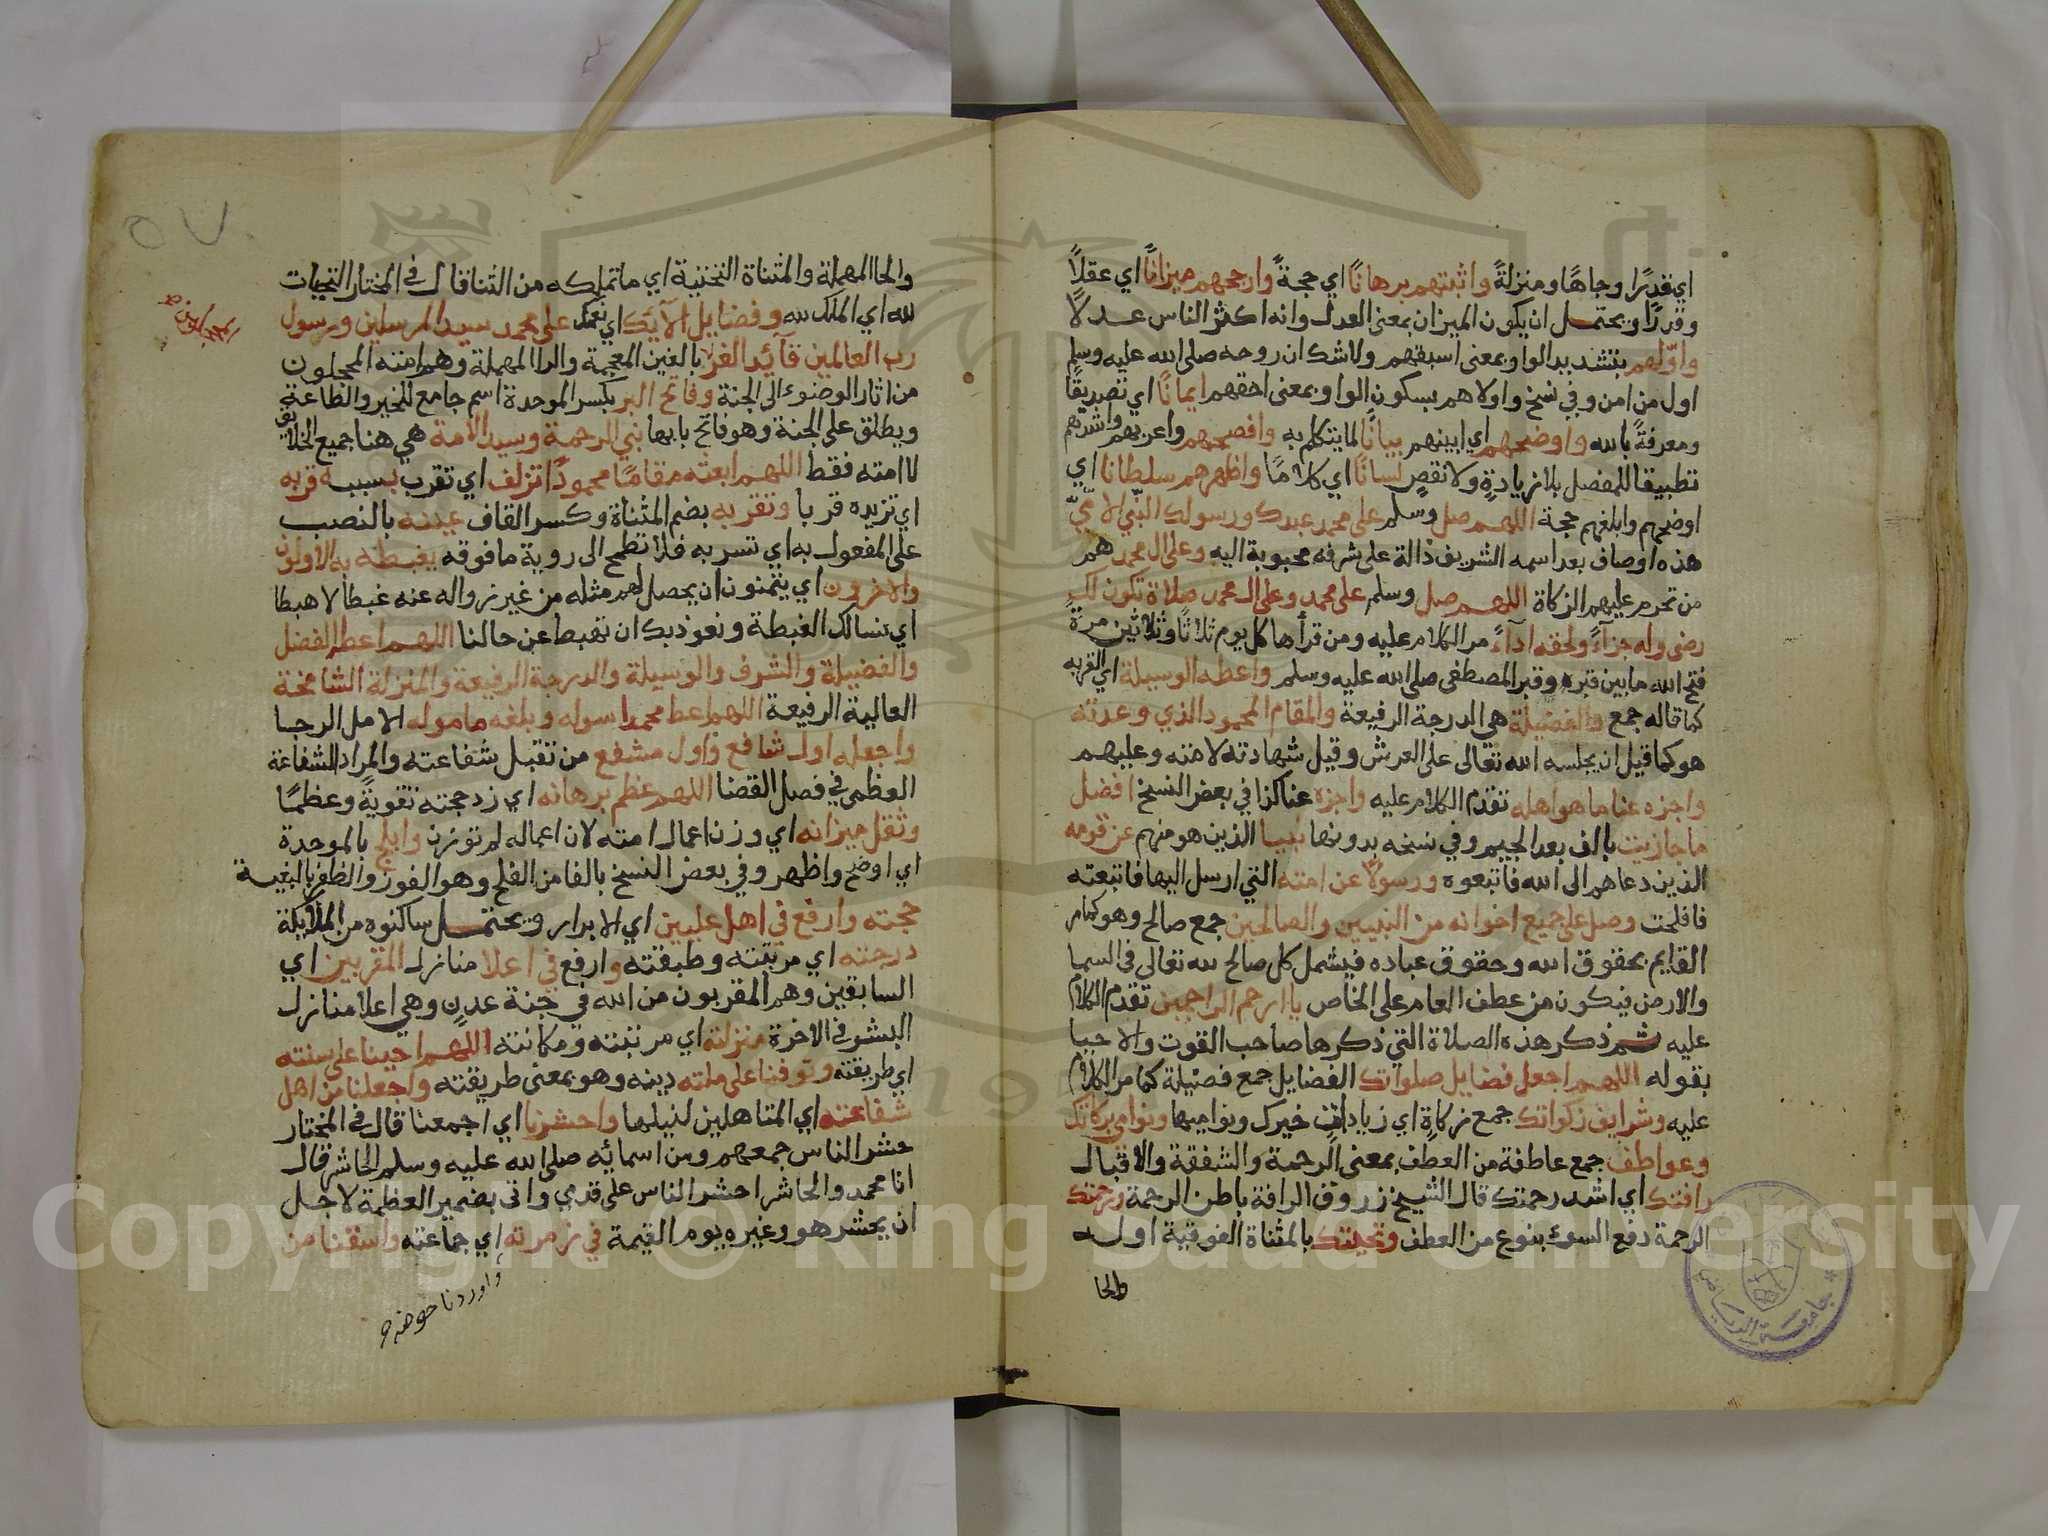 اي قدرًا وجاهًا ومنزلةً واثبتهم برهانًا اي حجةً وارجحهم ميزانًا اي عقلاً
وقدرًا ويحتمل ان يكون الميزان بمعنى العدل وانه اكثر الناس عدلاً
واوّلهم بتشديد الواو بمعنى اسبقهم ولا شك ان روحه صلى الله عليه وسلم
اول من امن وفي نسخ واولاهم بسكون الواو بمعنى احقهم ايمانًا اي تصديقًا
ومعرفةً بالله واوضحهم اي ابينهم بيانًا لما يتكلم به وافصحهم واعربهم واشدهم
تطبيقا للمفصل بلا زيادةٍ ولا نقصٍ لسانًا اي كلامًا واظهرهم سلطانا اي
اوضحهم وابلغهم حجة اللهم صل وسلم على محمد عبدك ورسولك النبي الامّيّ
هذه اوصاف بعد اسمه الشريف دالة على شرفه محبوبة اليه وعلى ال محمد هم
من تحرم عليهم الزكاة اللهم صل وسلم على محمد وعلى ال محمد صلاة تكون لك
رضى وله جزاءً ولحقه اداءً مر الكلام عليه ومن قرأها كل يوم ثلاثًا وثلاثين مرةً
فتح الله ما بين قبره وقبر المصطفى صلى الله عليه وسلم واعطه الوسيلة اي القربة
كما قاله جمع والفضيلة هي الدرجة الرفيعة والمقام المحمود الذي وعدته
هو كما قيل ان يجلسه الله تعالى على العرش وقيل شهادته لامته وعليهم
واجزه عنا ما هو اهله تقدم الكلام عليه واجزه عنا كذا في بعض النسخ افضل
ما جازيت بالف بعد الجيم وفي نسخه بدونها نبيا الذين هو منهم عن قومه
الذين دعاهم الى الله فاتبعوه ورسولاً عن امته التي ارسل اليها فاتبعته
فافلحت وصل على جميع اخوانه من النبيين والصالحين جمع صالح وهو كما مر
القايم بحقوق الله وحقوق عباده فيشمل كل صالح لله تعالى في السما
والارض فيكون من عطف العام على الخاص يا ارحم الراحمين تقدم الكلام
عليه ثم ذكر هذه الصلاة التي ذكرها صاحب القوت والاحيا
بقوله اللهم اجعل فضايل صلواتك الفضايل جمع فضيلة كما مر الكلام
عليه وشرايف زكواتك جمع زكاةٍ اي زيادات خيرك ونواميها ونوامي بركاتك
وعواطف جمع عاطفة من العطف بمعنى الرحمة والشفقة والاقبال
رافتك اي اشد رحمتك قال الشيخ زروق الرافة باطن الرحمة ورحمتك
الرحمة دفع السوء بنوع من العطف وتحيتك بالمثناة الفوقية اوله
والحا
والحا المهملة والمثناة التحتية اي ما تملكه من الثنا قال في المختار التحيات
لله اي الملك لله وفضايل الآيك اي نعمك على محمد سيد المرسلين ورسول
رب العالمين قآئد الغر بالغين المعجمة والرا المهملة وهم امته المحجلون
من اثار الوضوء الى الجنة وفاتح البر بكسر الموحدة اسم جامع للخير والطاعة
ويطلق على الجنة وهو فاتح بابها نبي الرحمة وسيد الامة هي هنا جميع الخلايق
لا امته فقط اللهم ابعثه مقامًا محمودًا تزلف اي تقرب بسببه قربه
اي تزيده قربا وتقر به بضم المثناة وكسر القاف عينه بالنصب
على المفعول به اي تسر به فلا تطمح الى روية ما فوقه يغبطه به الاولون
والاخرون اي يتمنون ان يحصل لهم مثله من غير زواله عنه غبطا لا هبطا
اي نسالك الغبطة ونعوذ بك ان نهبط عن حالنا اللهم اعطه الفضل
والفضيلة والشرف والوسيلة والدرجة الرفيعة والمنزلة الشامخة
العالية الرفيعة اللهم اعط محمدا سوله وبلغه ماموله الامل الرجا
واجعله اول شافع واول مشفع من تقبل شفاعته والمراد الشفاعة
العظمى في فصل القضا اللهم عظم برهانه اي زد حجته تقويةً وعظمًا
وثقل ميزانه اي وزن اعمال امته لان اعماله لم توزن وابلج بالموحدة
اي اوضح واظهر وفي بعض النسخ بالفا من الفلح وهو الفوز والظفر بالبغية
حجته وارفع في اهل عليين اي الابرار ويحتمل ساكنوه من الملايكة
درجته اي مرتبته وطبقته وارفع في اعلا منازل المقربين اي
السابقين وهم المقربون من الله في جنة عدنٍ وهي اعلا منازل
البشر في الاخرة منزلته اي مرتبته ومكانته اللهم احينا على سنته
اي طريقته وتوفنا على ملته دينه وهو بمعنى طريقته واجعلنا من اهل
شفاعته اي المتاهلين لنيلها واحشرنا اي اجمعنا قال في المختار
حشر الناس جمعهم ومن اسمائه صلى الله عليه وسلم الحاشر قال
انا محمد والحاشر احشر الناس على قدمي واتى بضمير العظمة لاجل
ان يحشر هو وغيره يوم القيمة في زمرته اي جماعته واسقنا من
واوردنا حوضه
٥٧
Copyright © King Saud University
جامعة الرياض